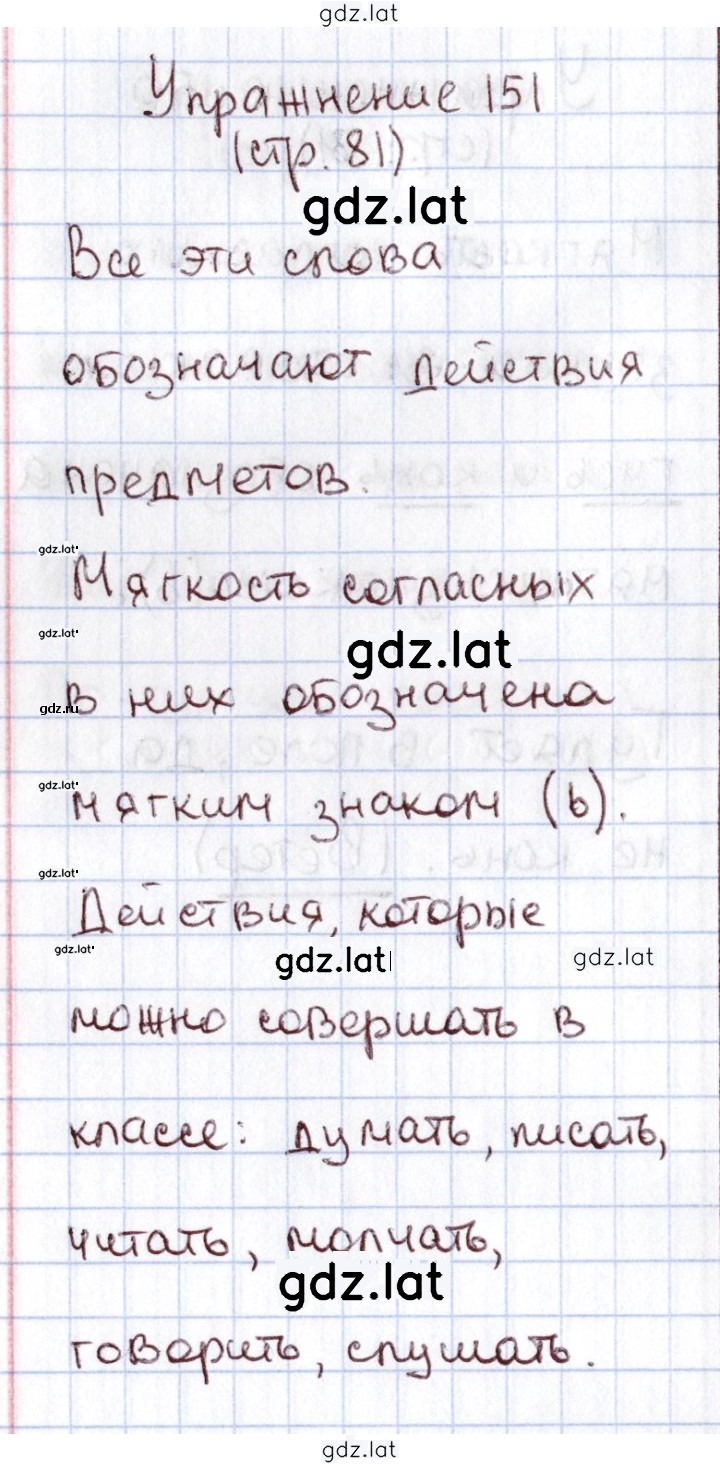 gdz.lat
Упражнение 151
(стр. 81)
gdz.lat
Все эти слова
обозначают действия
предметов.
gdz.lat
Мягкость согласных
gdz.lat
gdz.lat
gdz.ru
в них обозначена
gdz.lat
мягким знаком (ь).
gdz.lat
Действия, которые
gdz.lat
gdz.lat
gdz.lat
можно совершать в
классе: думать, писать,
читать, молчать,
gdz.lat
говорить, слушать.
gdz.lat